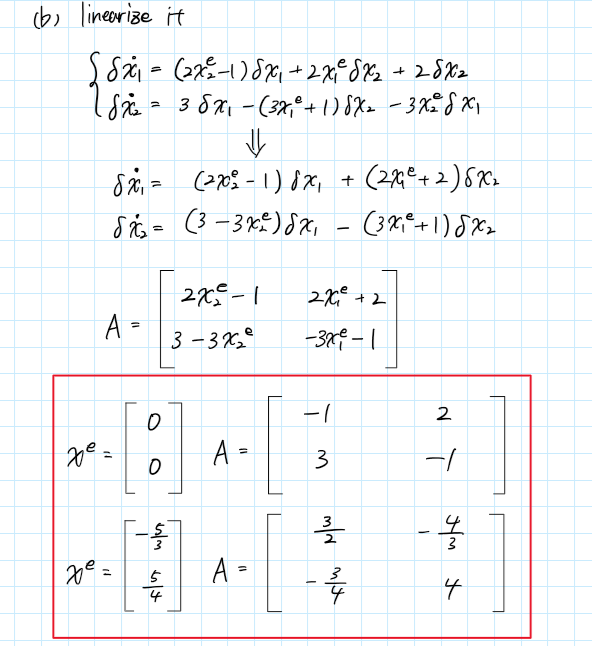 (b) linearize it
δẋ₁ = (2x₂ᵉ-1)δx₁ + 2x₁ᵉδx₂ + 2δx₂
δẋ₂ = 3δx₁ - (3x₁ᵉ+1)δx₂ - 3x₂ᵉδx₁
⇓
δẋ₁ = (2x₂ᵉ - 1)δx₁ + (2x₁ᵉ+2)δx₂
δẋ₂ = (3 - 3x₂ᵉ)δx₁ - (3x₁ᵉ+1)δx₂
A = [2x₂ᵉ - 1  2x₁ᵉ + 2
3 - 3x₂ᵉ  -3x₁ᵉ - 1]
xᵉ = [0 0] A = [-1 2
3 -1]
xᵉ = [-5/3 5/4] A = [3/2 -4/3
-3/4 4]